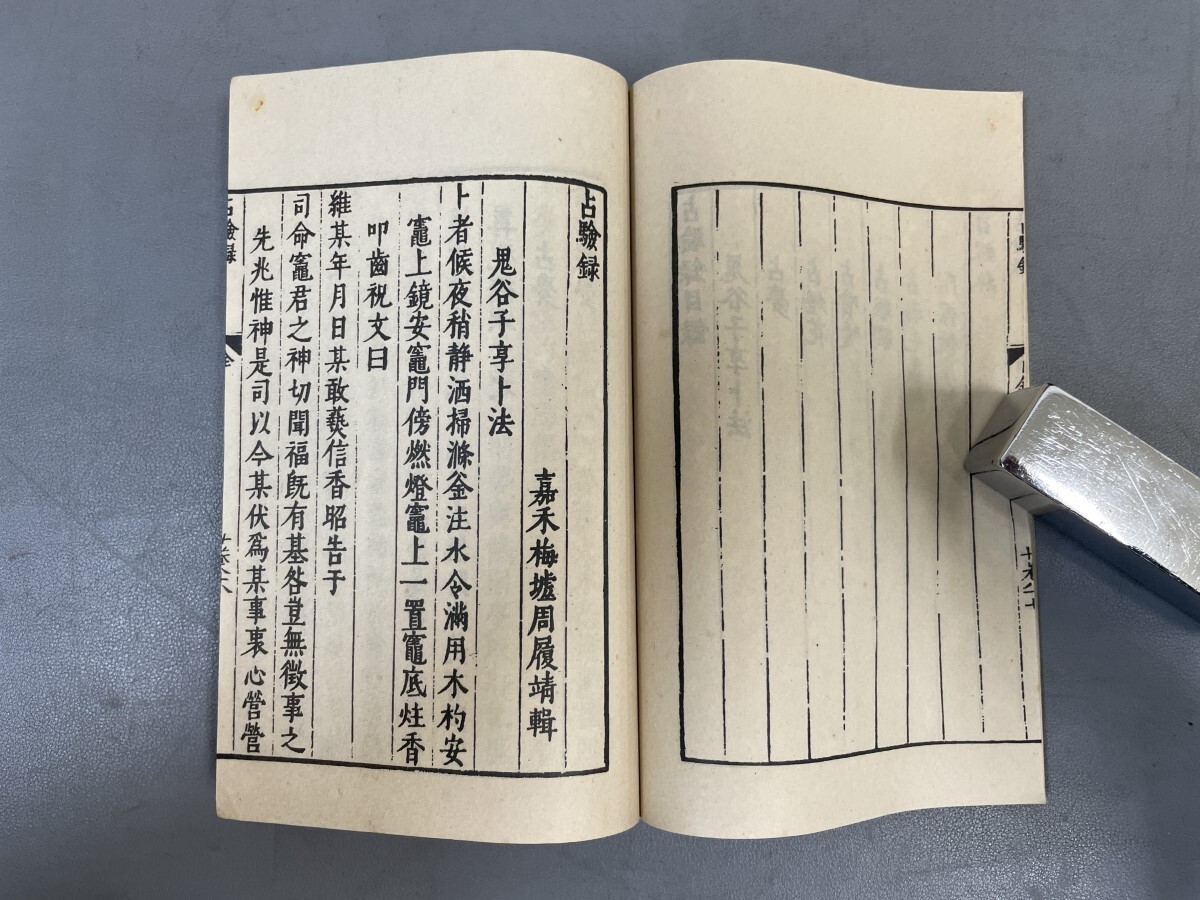 占驗録
嘉禾梅墟周履靖輯
鬼谷子享卜法
卜者候夜稍静洒掃滌釜注水令滿用木杓安
竈上鏡安竈門傍燃燈竈上一置竈底炷香
叩齒祝文曰
維某年月日某敢爇信香昭告于
司命竈君之神切聞福既有基咎豈無徵事之
先兆惟神是司以今某伏爲某事裏心營營
占驗録
全